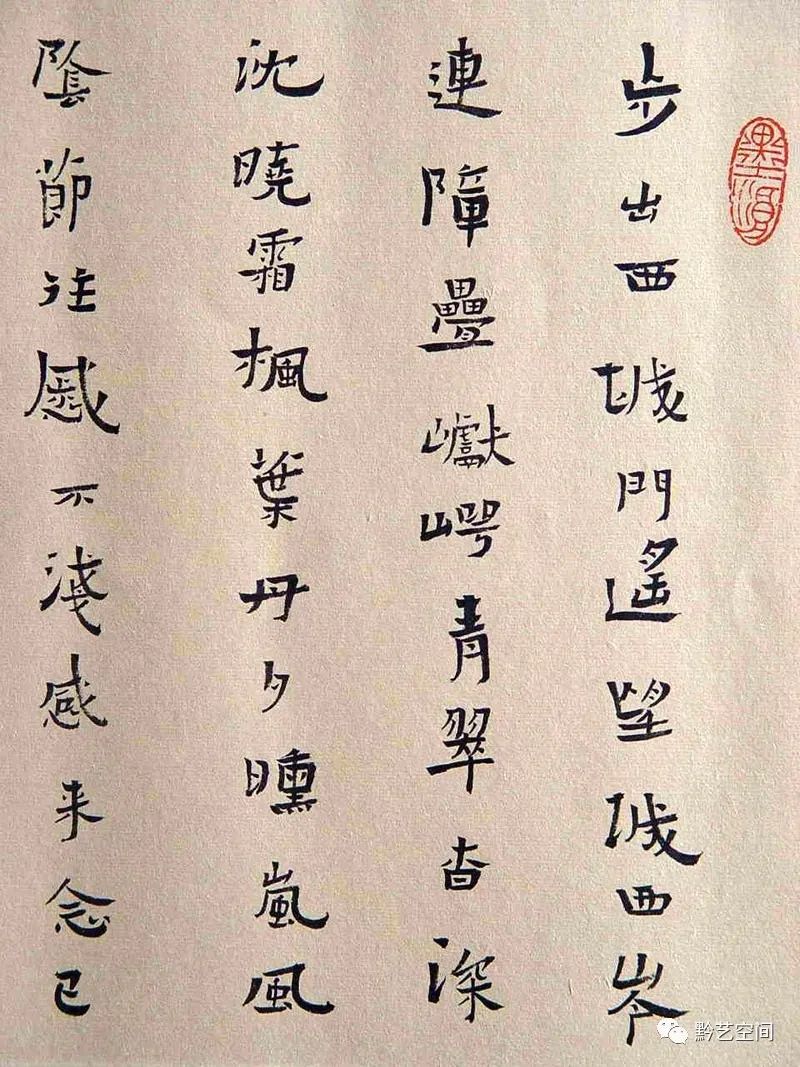 步出西城門遙望城西岑
連障疊巘崿青翠杳深
沈曉霜楓葉丹夕曛嵐風
陰節往慼不淺感来念已
黔艺空间